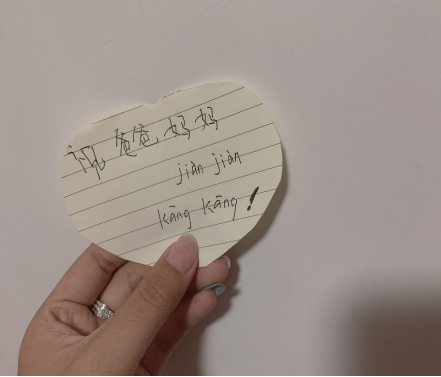 祝爸爸妈妈
jiàn jiàn
kāng kāng!